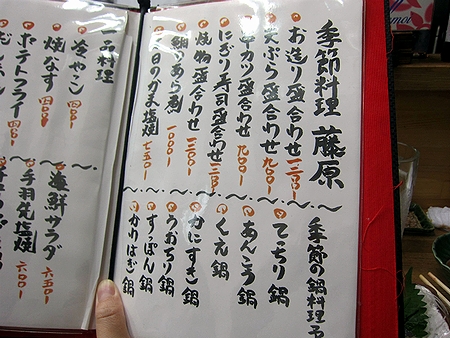 季節料理 藤原
お造り盛合わせ 一三〇〇
天ぷら盛合わせ 九〇〇
串カツ盛合わせ 九〇〇
にぎり寿司盛合わせ
焼物盛合わせ 一三〇〇
鯛あら煮 一〇〇〇
かま塩焼 七五〇
季節の鍋料理
てっちり鍋
あんこう鍋
くえ鍋
かにすき鍋
うおちり鍋
すっぽん鍋
かわはぎ鍋
一品料理
冷やっこ 四〇〇
焼なす 四〇〇
ポテトフライ 四〇〇
海鮮サラダ 六五〇
手羽先塩焼 六〇〇